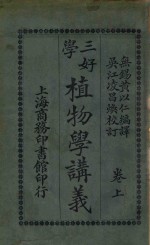 無錫黃以仁編譯
吳江凌昌煥校訂
三好學
植物學講義
卷上
上海商務印書館印行